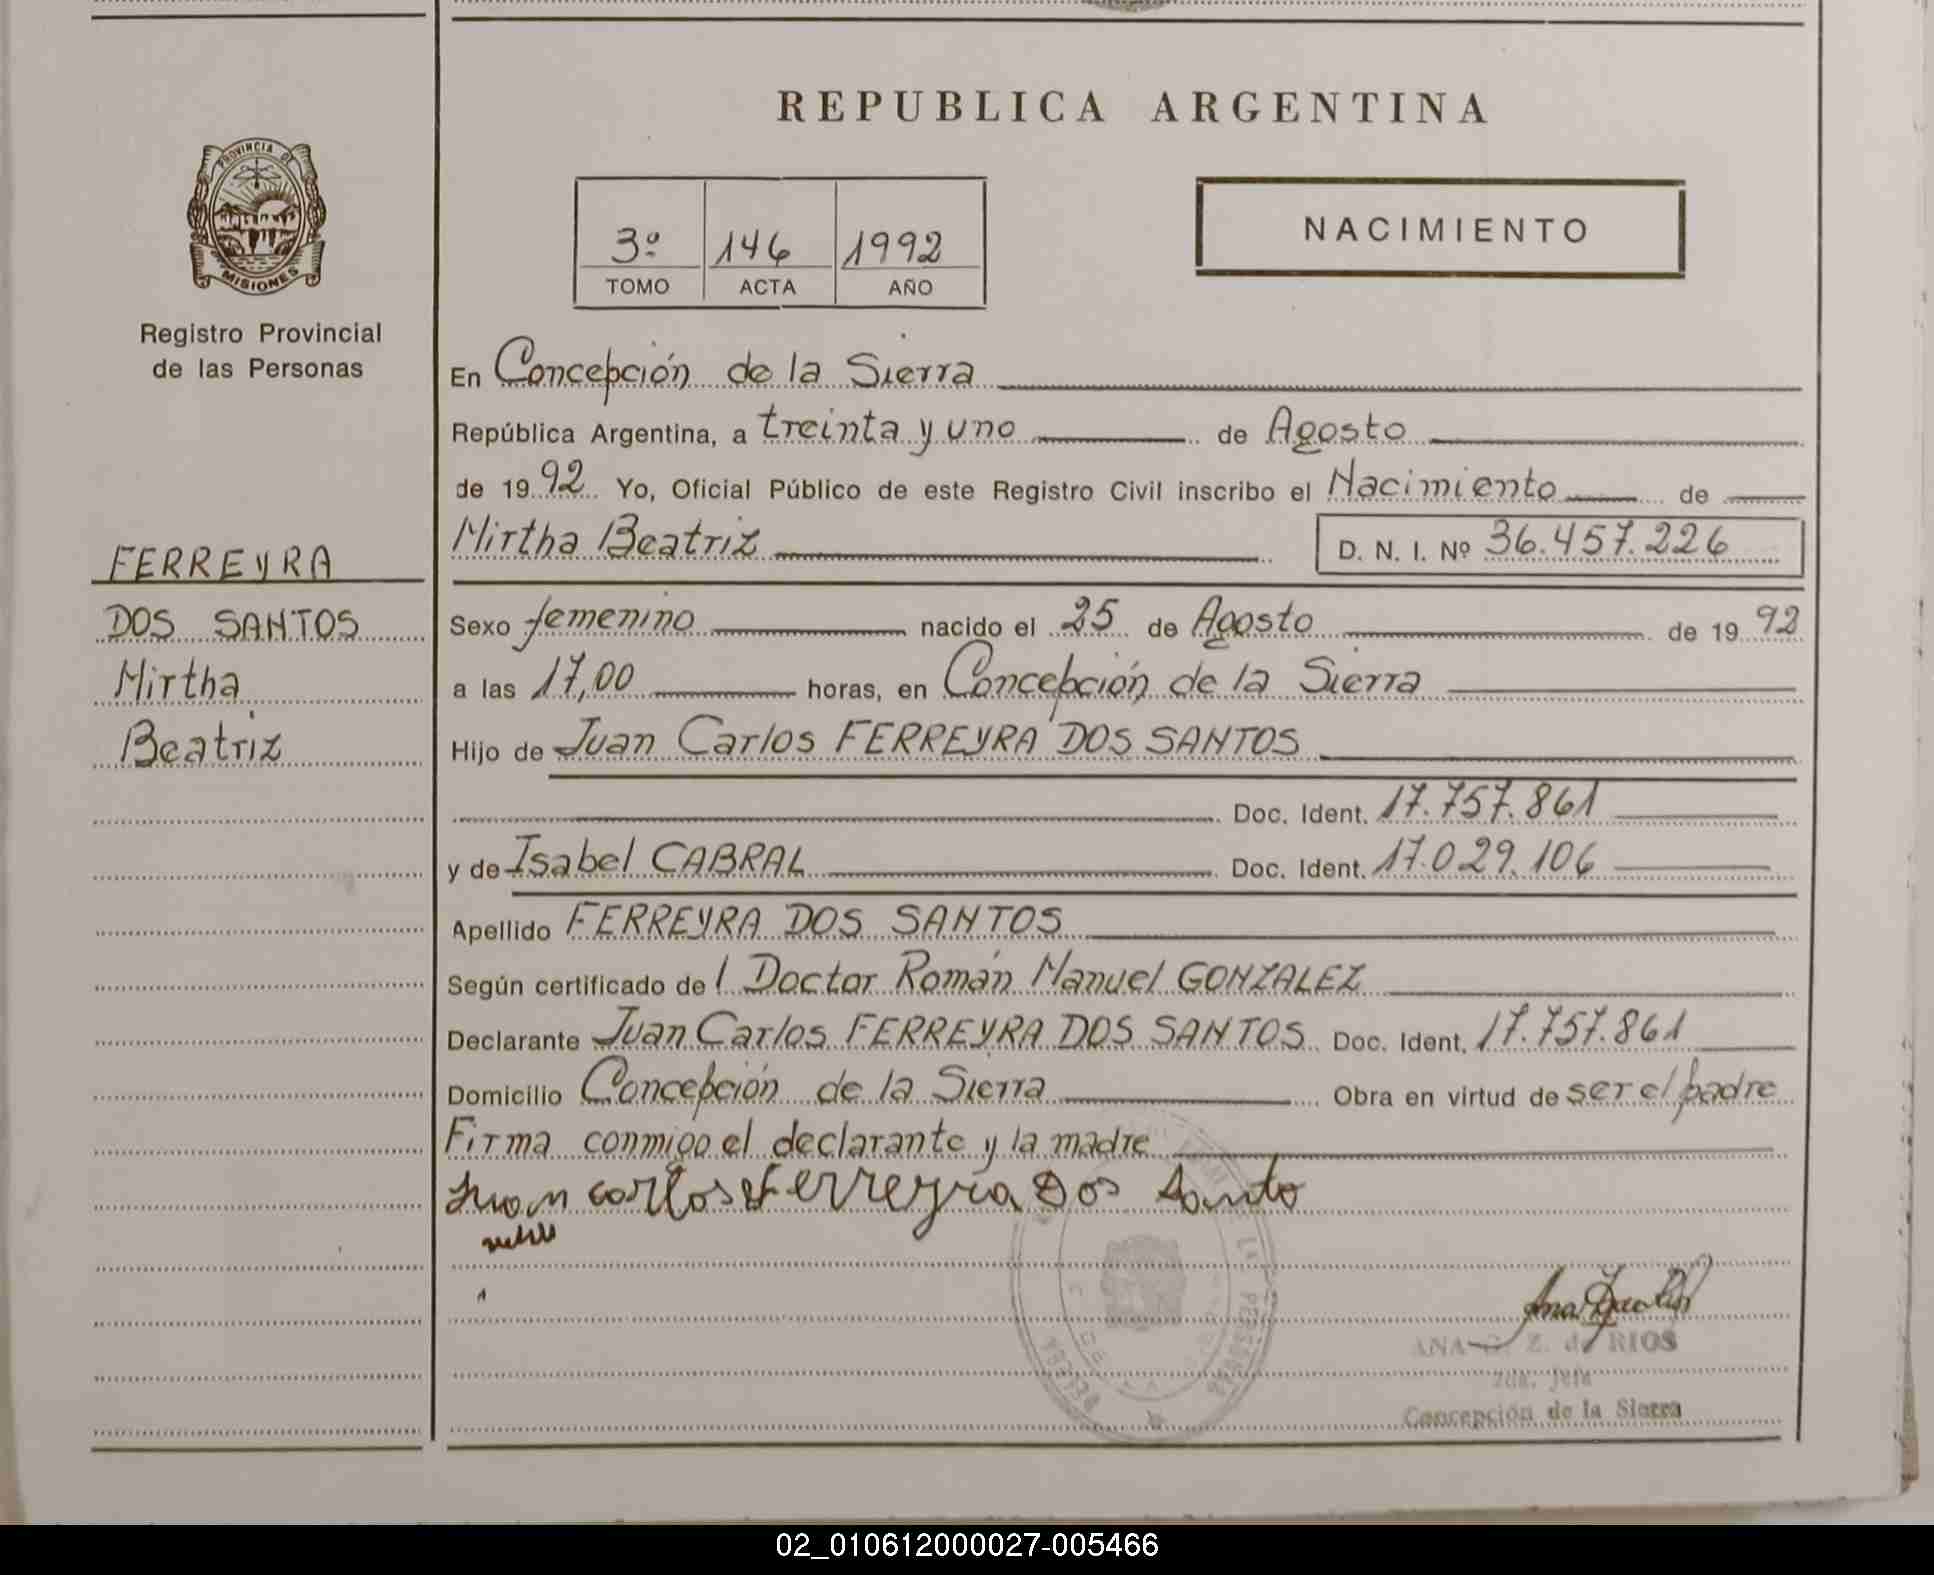 REPUBLICA ARGENTINA
PROVINCIA DE
MISIONES
Registro Provincial
de las Personas
3º 146 1992
TOMO ACTA AÑO
NACIMIENTO
FERREYRA
DOS SANTOS
Mirtha
Beatriz
En Concepción de la Sierra
República Argentina, a treinta y uno de Agosto
de 1992 Yo, Oficial Público de este Registro Civil inscribo el Nacimiento de
Mirtha Beatriz D. N. I. Nº 36.457.226
Sexo femenino nacido el 25 de Agosto de 1992
a las 17,00 horas, en Concepción de la Sierra
Hijo de Juan Carlos FERREYRA DOS SANTOS
Doc. Ident. 17.757.861
y de Isabel CABRAL Doc. Ident. 17.029.106
Apellido FERREYRA DOS SANTOS
Según certificado de l Doctor Román Manuel GONZALEZ
Declarante Juan Carlos FERREYRA DOS SANTOS Doc. Ident. 17.757.861
Domicilio Concepción de la Sierra Obra en virtud de ser el padre
Firma conmigo el declarante y la madre
Juan Carlos Ferreyra Dos Santo
ANA Z. de RIOS
Jefa
Concepción de la Sierra
02_010612000027-005466